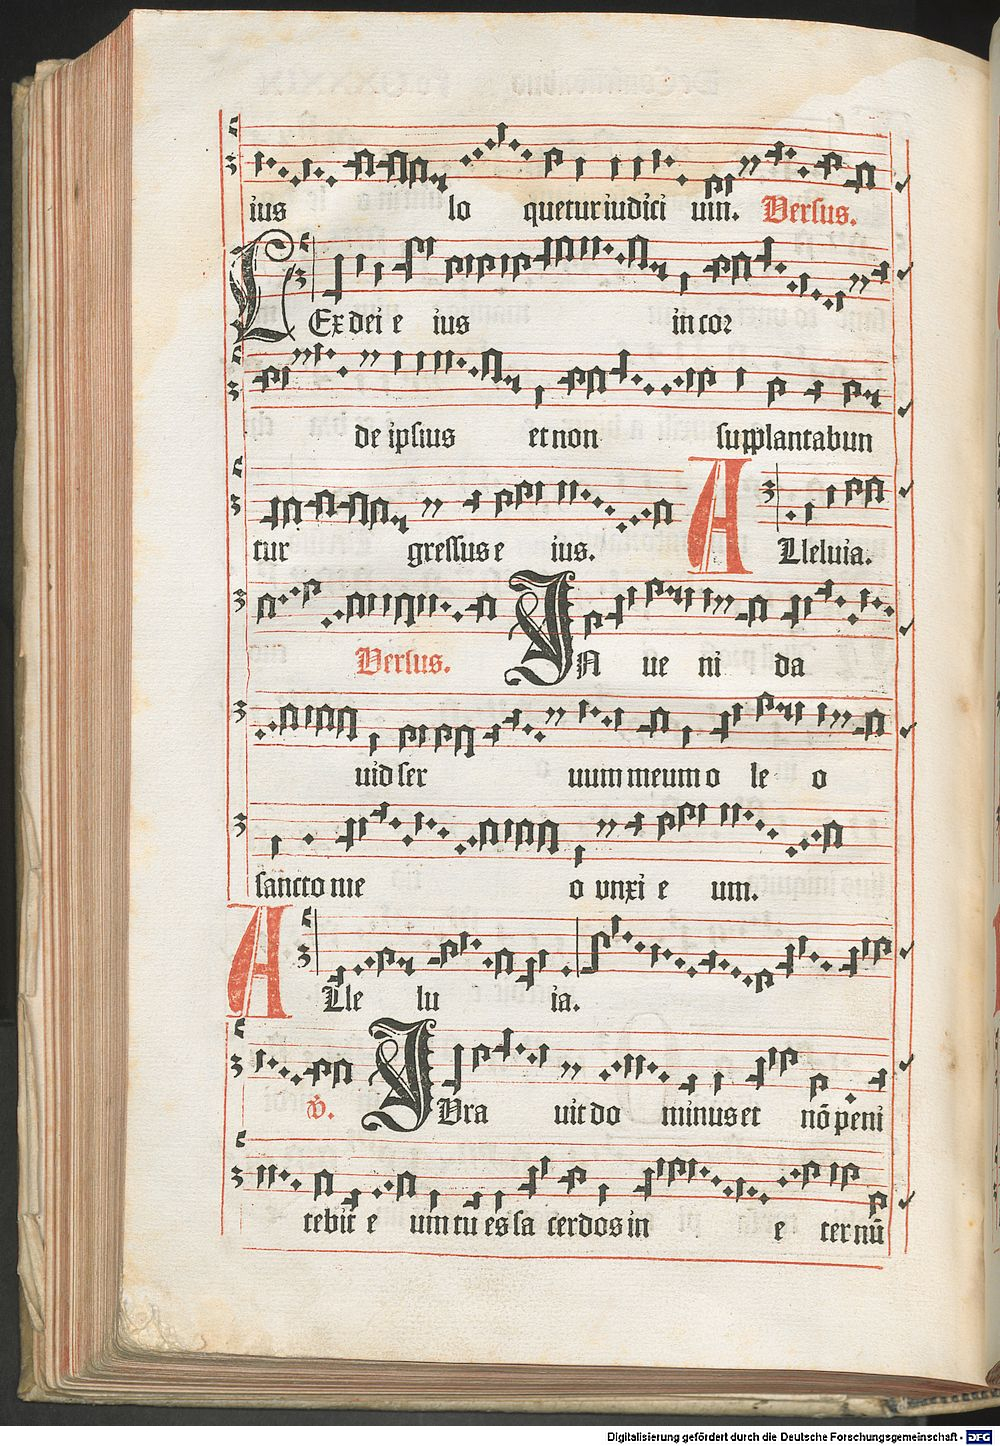 ius lo queturiudici um. Versus.
LEx dei e ius in cor
de ipsius et non supplantabun
tur gressus e ius. ALleluia.
Versus. IN ue ni da
uid ser uum meum o le o
sancto me o vnxi e um.
ALle lu ia.
v̄. IUra uit do minus et nō peni
tebit e um tu es sa cerdos in e ternū
Digitalisierung gefördert durch die Deutsche Forschungsgemeinschaft - DFG